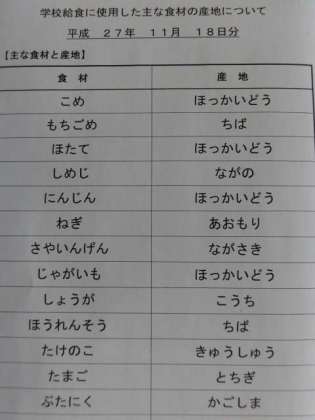 学校給食に使用した主な食材の産地について
平成 27年 11月 18日分
【主な食材と産地】
食材 産地
こめ ほっかいどう
もちごめ ちば
ほたて ほっかいどう
しめじ ながの
にんじん ほっかいどう
ねぎ あおもり
さやいんげん ながさき
じゃがいも ほっかいどう
しょうが こうち
ほうれんそう ちば
たけのこ きゅうしゅう
たまご とちぎ
ぶたにく かごしま